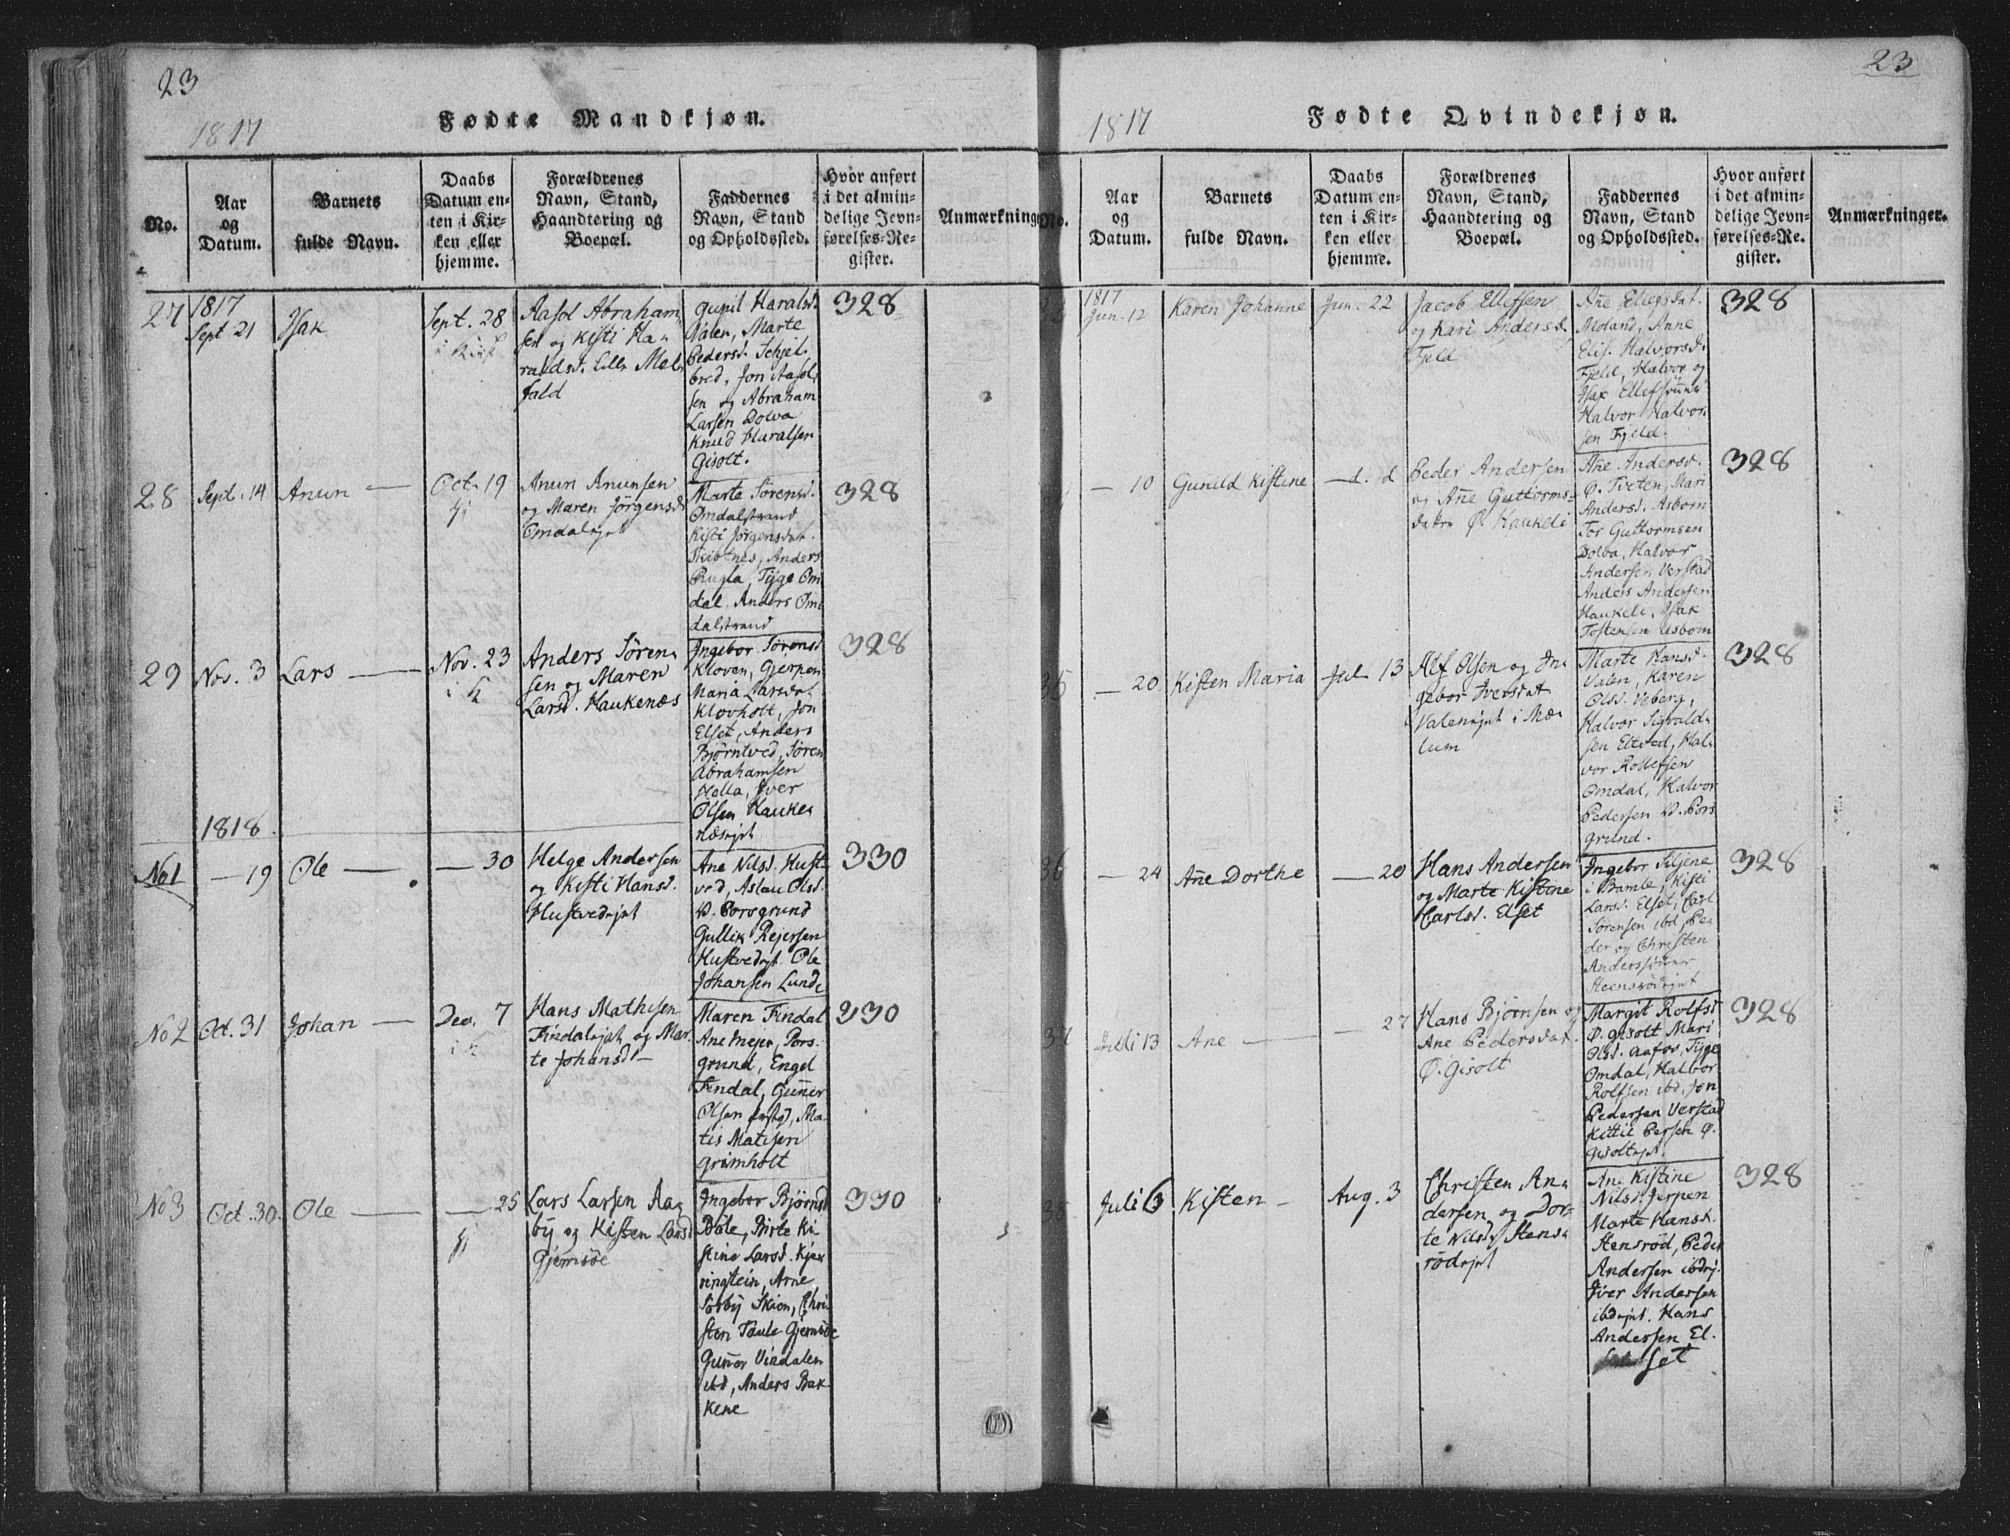 23
1817
Fødte Mandkjøn.
No.
Aar
og
Datum.
Barnets
fulde Navn.
Daabs
Datum en-
ten i Kir-
ken eller
hjemme.
Forældrenes
Navn, Stand,
Haandtering og
Boepæl.
Faddernes
Navn, Stand
og Opholdssted.
Hvor anført
i det almin-
delige Jevn-
førelses-Re-
gister.
Anmærkninge
27
1817
Sept 21
Isak
Sept. 28
Aasol Abraham
sen og Kisti Ha-
raldsd. Lille Mel
fald
Gunil Haralsd.
Valen, Marte
Pedersd. Schjel-
bred, Jon Aasol
sen og Abraham
Larsen Dolva
Knud Haralsen
Gisolt.
328
28
Sept. 14
Anun
Oct. 19
Anun Anunsen
og Maren Jörgensd
Omdalejet
Marte Sörensd.
Omdalstrand
Kisti Jörgensdat.
Skibsnes, Anders
Rugla, Tÿge Om
dal, Anders Om
dalstrand
328
29
Nov. 3
Lars
Nov. 23
Anders Sören-
sen og Maren
Larsd. Haukenæs
Ingebor Sörensd
Kloven, Gjerpen
Maria Larsdat
Klovholt, Jon
Elset, Anders
Björntved, Sören
Abrahamsen
Holla, Iver
Olsen Hauke-
næsejet
328
1818.
No 1
— 19
Ole
— 30
Helge Andersen
og Kisti Hansd.
Hustvedejet
Ane Nilsd. Hust
ved, Aslau Olsd.
V. Porsgrund
Gullik Rejersen
Hustvedejt. Ole
Johansen Lunde
330
No 2
Oct. 31
Johan
Dec. 7
Hans Mathisen
Findalejet og Mar-
te Johansd.
Maren Findal
Ane Mejer, Pors-
grund, Engel
Findal, Guñer
Olsen, Ma-
tis Matisen
Grimholt
330
No 3
Oct. 30.
Ole
— 25
Lars Larsen Aa-
bÿ og Kisten Larsd
Gjemsöe
Ingebor Björnsd
Böle, Birte Ki
stine Larsd. Kjer
ringtein, Arne
Skien, Chri-
sten Gjemsöe
Guñer Vindalen
ibd, Anders Bak
kene
330
23
1817
Fødte Qvindekjøn.
No.
Aar
og
Datum.
Barnets
fulde Navn.
Daabs
Datum en-
ten i Kir-
ken eller
hjemme.
Forældrenes
Navn, Stand,
Haandtering og
Boepæl.
Faddernes
Navn, Stand
og Opholdssted.
Hvor anført
i det almin-
delige Jevn-
førelses-Re-
gister.
Anmærkninger.
1817
Jun. 12
Karen Johanne
Jun. 22
Jacob Ellefsen
og Kari Andersd.
Fjeld
Añe
Moland, Anne
Elis. Halvorsd.
Fjeld, Halvor og
Isak Ellefsöñer
Halvor Halvor-
sen Fjeld.
328
— 10
Gunild Kistine
— d. d
Peder Andersen
og Añe Guttorms-
datter Ö. Haukeli
Añe Andersd.
Ö. Tveten, Mari
Andersd. Asbom
Tor Guttormsen
Dolva, Halvor
Andersen Verstad
Anders Andersen
Haukeli, Isak
Tostensen Asbom
328
35
— 20
Kisten Maria
Jul. 13
Alf Olsen og In-
gebor Iversdat
Valenejet i Mæ-
lum
Marte Hansd.
Valen, Karen
Olsd. Veberg,
Halvor Sigvald-
sen Eltved, Hal-
vor Rollefsen
Omdal, Halvor
Pedersen V. Pors
grund.
328
36
— 24
Añe Dorthe
— 20
Hans Andersen
og Marte Kistine
Carlsd. Elset
Ingebor Siljene
i Bamle, Kisti
Larsd. Elset, Carl
Sörensen ibd, Pe-
der og Christen
Anderssönner
Steensrödejet
328
37
Juli 13
Ane
— 27
Hans Björnsen og
Ane Pedersdat.
Ö. Gisolt
Margit Rolfsd
Ö. Gisolt Mari
Olsd. Aafos, Tÿge
Omdal, Halvor
Rolfsen ibd, Jon
Pedersen Verstad
Kittil Persen Ö.
Gisoltejet.
328
38
Juli 6
Kisten
Aug. 3
Christen An-
dersen og Dor-
te Nilsd. Stens-
rödejet
Ane Kistine
Nilsd. Jerpen
Marte Hansd.
Stensröd, Peder
Andersen ibdej.
Iver Andersen
ibdejet. Hans
Andersen El-
set
328